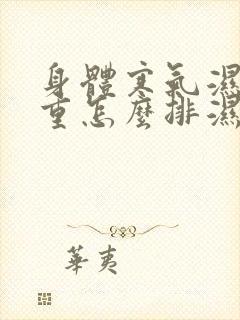 身體寒氣濕
重怎麼排濕
華夷